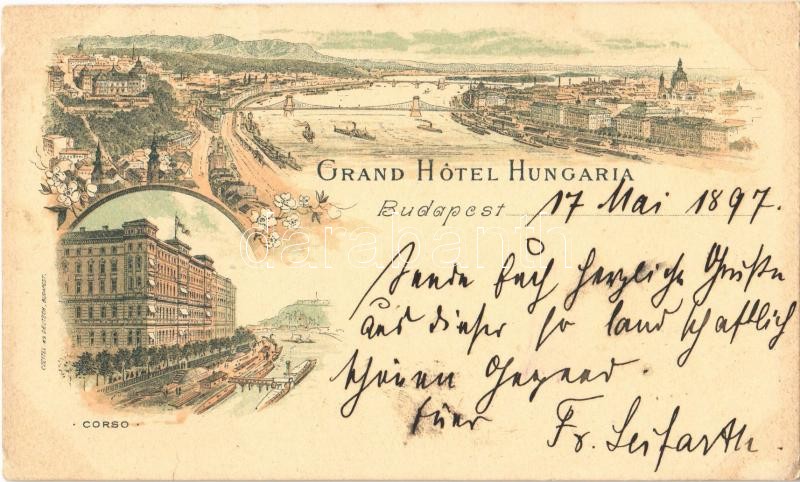 GRAND HÔTEL HUNGARIA
Budapest 17 Mai 1897.
Sende Euch herzliche Grüße
aus dieser so landschaftlich
schönen Gegend.
Euer Fr. Seifarth.
CORSO
BUDAPEST.
darabanth